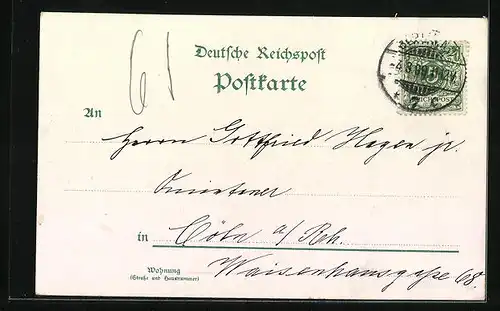 61
Deutsche Reichspost
Postkarte
An
Herrn Gottfried Hagen jr.
in Cöln a/Rh.
Wohnung
(Straße und Hausnummer)
Waisenhausgasse 68.
REICHSPOST